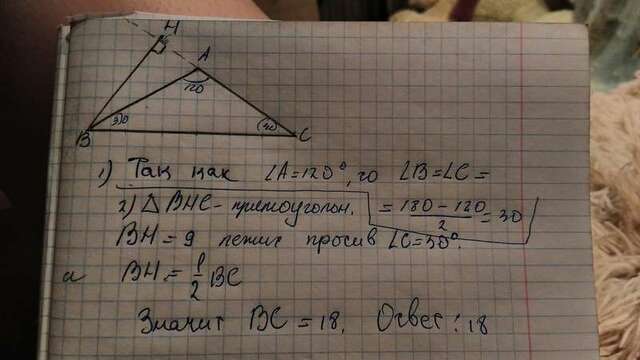 H
A
120
B
30
30
C
1) Так как ∠A=120°, то ∠B=∠C=
= 180-120 / 2 = 30
2) △ BHC - прямоугольн.
BH = 9 лежит против ∠C=30°.
и BH = 1/2 BC
Значит BC = 18. Ответ: 18